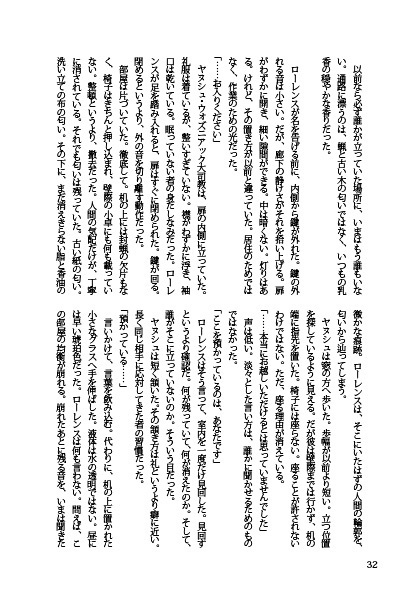 以前なら必ず誰かが立っていた場所に、いまはもう誰もいな
い。通路に漂うのは、蝋と古い木の匂いではなく、いつもの乳
香の穏やかな香りだった。
ローレンスが名を告げる前に、内側から鍵が外れた。鍵の外
れる音は小さい。だが、廊下の静けさがそれを拾い上げる。扉
がわずかに開き、細い隙間ができる。中は暗くない。灯りはあ
る。けれど、その置き方が以前と違っていた。居住のためでは
なく、作業のための光だった。
「……お入りください」
ヤヌシュ・ヴォズニアック大司教は、扉の内側に立っていた。
礼服は着ているが、整いすぎていない。襟がわずかに浮き、袖
口は乾いている。眠っていない者の身だしなみだった。ローレ
ンスが足を踏み入れると、扉はすぐに閉められた。鍵が回る。
閉めるというより、外の音を切り離す動作だった。
部屋は片づいていた。徹底して。机の上には封蝋の欠片もな
く、椅子はきちんと押し込まれ、壁際の小卓にも何も載ってい
ない。整頓というより、撤去だった。人間の気配だけが、丁寧
に消されている。それでも匂いは残っていた。古い紙の匂い。
洗い立ての布の匂い。その下に、まだ消えきらない脂と香油の
微かな痕跡。ローレンスは、そこにいたはずの人間の輪郭を、
匂いから辿ってしまう。
ヤヌシュは窓の方へ歩いた。歩幅が以前より短い。立つ位置
を探しているように見える。だが彼は壁際までは行かず、机の
端に指先を置いた。椅子には座らない。座ることが許されない
わけではない。ただ、座る理由が消えている。
「……本当にお越しいただけるとは思っていませんでした」
声は低い。淡々とした言い方は、誰かに聞かせるためのもの
ではなかった。
「ここを預かっているのは、あなたです」
ローレンスはそう言って、室内を一度だけ見回した。見回す
というより確認だ。何が残っていて、何が消えたのか。そして、
誰がそこに立っていないのか。そういう目だった。
ヤヌシュは短く頷いた。その頷き方は礼というより癖に近い。
長く同じ相手に応対してきた者の習慣だった。
「預かっている？……」
言いかけて、言葉を飲み込む。代わりに、机の上に置かれた
小さなグラスへ手を伸ばした。液体は水の透明ではない。昼に
は早い琥珀色だった。ローレンスは何も言わない。問えば、こ
の部屋の均衡が崩れる。崩れたあとに残る音を、いまは聞きた
32